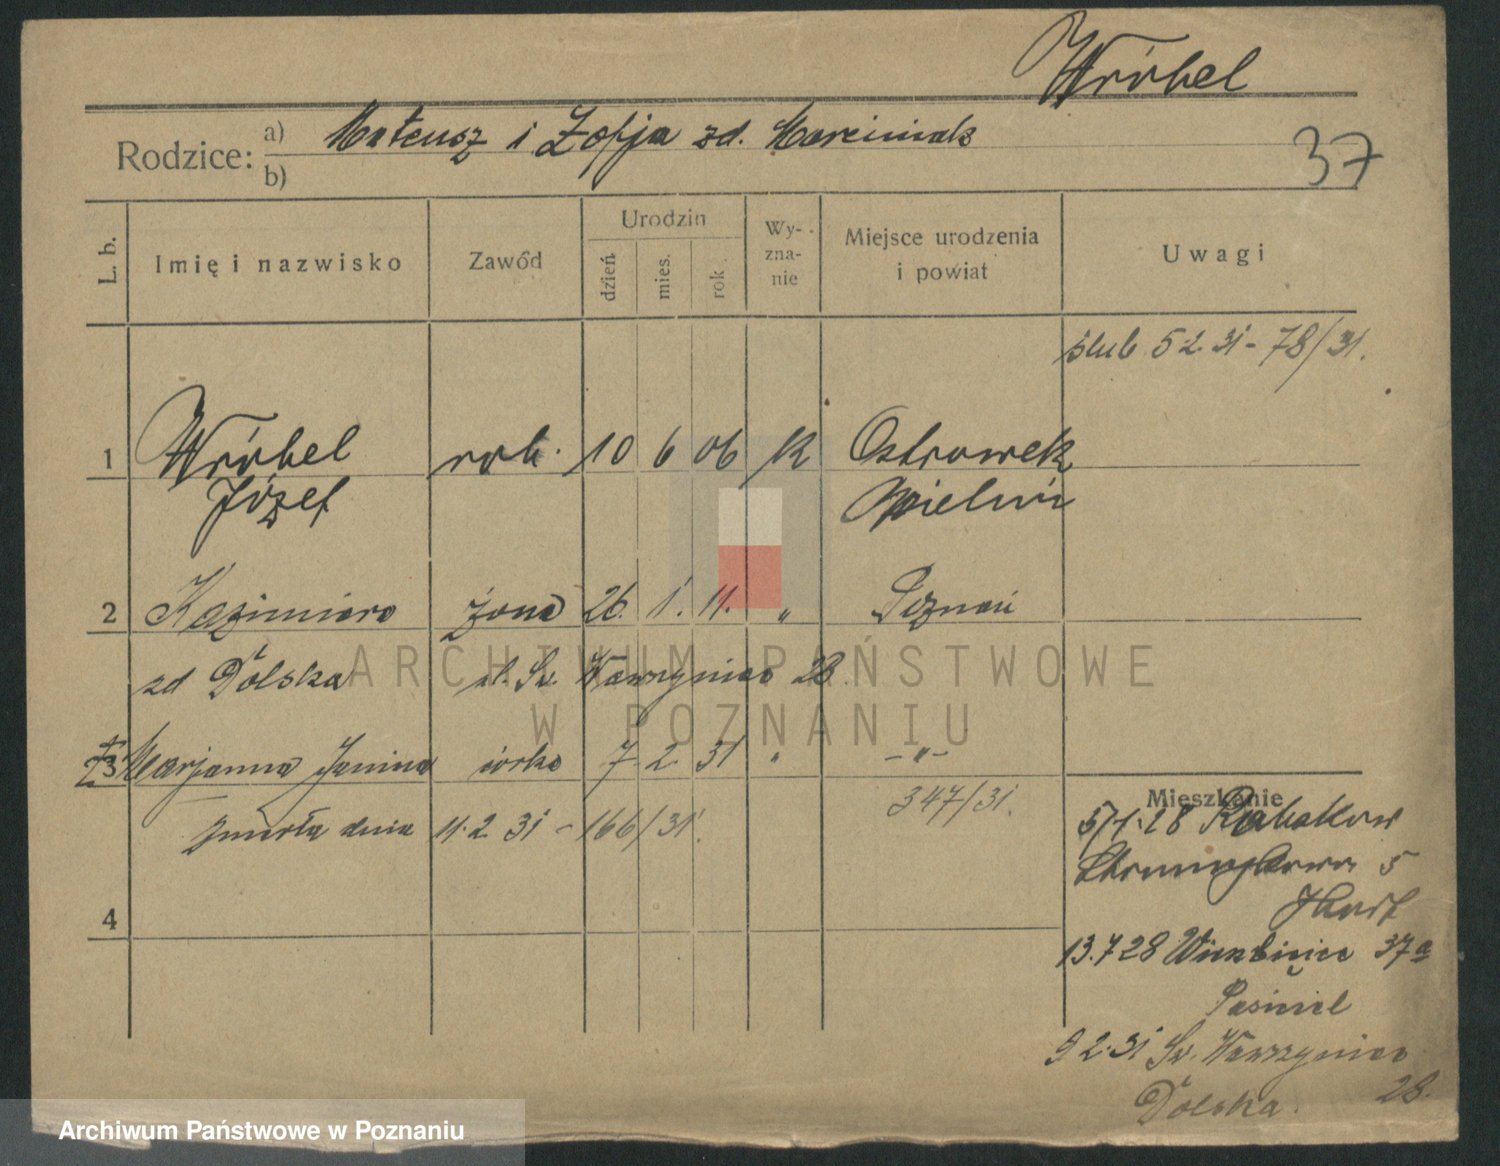 Wróbel
Rodzice: a) Mateusz i Zofja zd. Marciniak
b)
37
L. b.
Imię i nazwisko
Zawód
Urodzin
dzień
mies.
rok
Wy-
zna-
nie
Miejsce urodzenia
i powiat
Uwagi
ślub 5 2. 31 - 78/31.
1 Wróbel rob. 10 6 06 K Ostrowek
Józef Wieluń
2 Kazimiera żona 26. 1. 11. " Poznań
zd Dolska ul. Św. Wawrzyniec 28.
ARCHIWUM PAŃSTWOWE
W POZNANIU
3 Marjanna Janina córka 7. 2. 31 " -"-
347/31.
zmarła dnia 11. 2 31 - 166/31.
4
Mieszkanie
5/1.28
5
13.7 28 37a
9 2. 31 Św. Wawrzyniec
Dolska. 28.
Archiwum Państwowe w Poznaniu